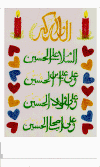 السلام على الحسين
وعلى علي بن الحسين
وعلى اولاد الحسين
وعلى اصحاب الحسين